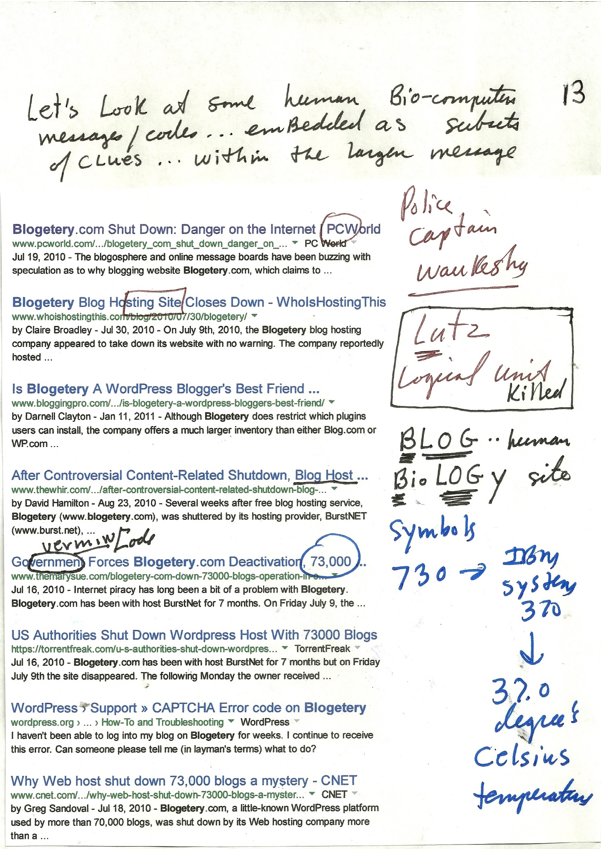 Let's Look at some human Bio-computer 13
messages/codes... emBedded as subsets
of CLUES ... within the larger message
Blogetery.com Shut Down: Danger on the Internet | PCWorld
www.pcworld.com/.../blogetery_com_shut_down_danger_on_... PC World
Jul 19, 2010 - The blogosphere and online message boards have been buzzing with
speculation as to why blogging website Blogetery.com, which claims to ...
Blogetery Blog Hosting Site Closes Down - WhoIsHostingThis
www.whoishostingthis.com/blog/2010/07/30/blogetery/
by Claire Broadley - Jul 30, 2010 - On July 9th, 2010, the Blogetery blog hosting
company appeared to take down its website with no warning. The company reportedly
hosted ...
Is Blogetery A WordPress Blogger's Best Friend ...
www.bloggingpro.com/.../is-blogetery-a-wordpress-bloggers-best-friend/
by Darnell Clayton - Jan 11, 2011 - Although Blogetery does restrict which plugins
users can install, the company offers a much larger inventory than either Blog.com or
WP.com ...
After Controversial Content-Related Shutdown, Blog Host ...
www.thewhir.com/.../after-controversial-content-related-shutdown-blog-...
by David Hamilton - Aug 23, 2010 - Several weeks after free blog hosting service,
Blogetery (www.blogetery.com), was shuttered by its hosting provider, BurstNET
(www.burst.net), ...
vermin code
Government Forces Blogetery.com Deactivation, 73,000 ...
www.themarysue.com/blogetery-com-down-73000-blogs-operation-in-o...
Jul 16, 2010 - Internet piracy has long been a bit of a problem with Blogetery.
Blogetery.com has been with host BurstNet for 7 months. On Friday July 9, the ...
US Authorities Shut Down Wordpress Host With 73000 Blogs
https://torrentfreak.com/u-s-authorities-shut-down-wordpres... TorrentFreak
Jul 16, 2010 - Blogetery.com has been with host BurstNet for 7 months but on Friday
July 9th the site disappeared. The following Monday the owner received ...
WordPress › Support » CAPTCHA Error code on Blogetery
wordpress.org › ... › How-To and Troubleshooting WordPress
I haven't been able to log into my blog on Blogetery for weeks. I continue to receive
this error. Can someone please tell me (in layman's terms) what to do?
Why Web host shut down 73,000 blogs a mystery - CNET
www.cnet.com/.../why-web-host-shut-down-73000-blogs-a-myster... CNET
by Greg Sandoval - Jul 18, 2010 - Blogetery.com, a little-known WordPress platform
used by more than 70,000 blogs, was shut down by its Web hosting company more
than a ...
Police
Captain
Waukesha
Lutz
Logical unit
Killed
BLOG .. human
BioLOGy site
Symbols
730 → IBM
system
370
↓
37.0
degree's
Celsius
temperature